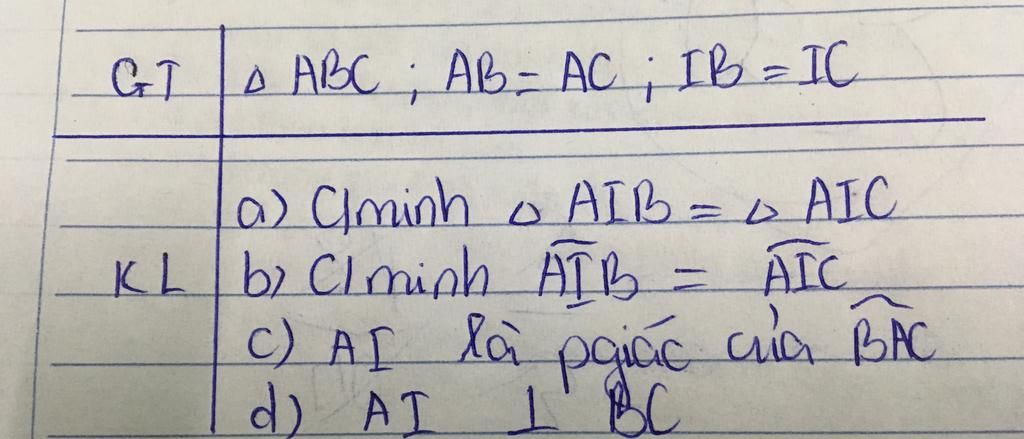 GT △ ABC ; AB = AC ; IB = IC
a) C/minh △ AIB = △ AIC
KL b) C/minh \widehat{AIB} = \widehat{AIC}
c) AI là pgiác của \widehat{BAC}
d) AI ⊥ BC